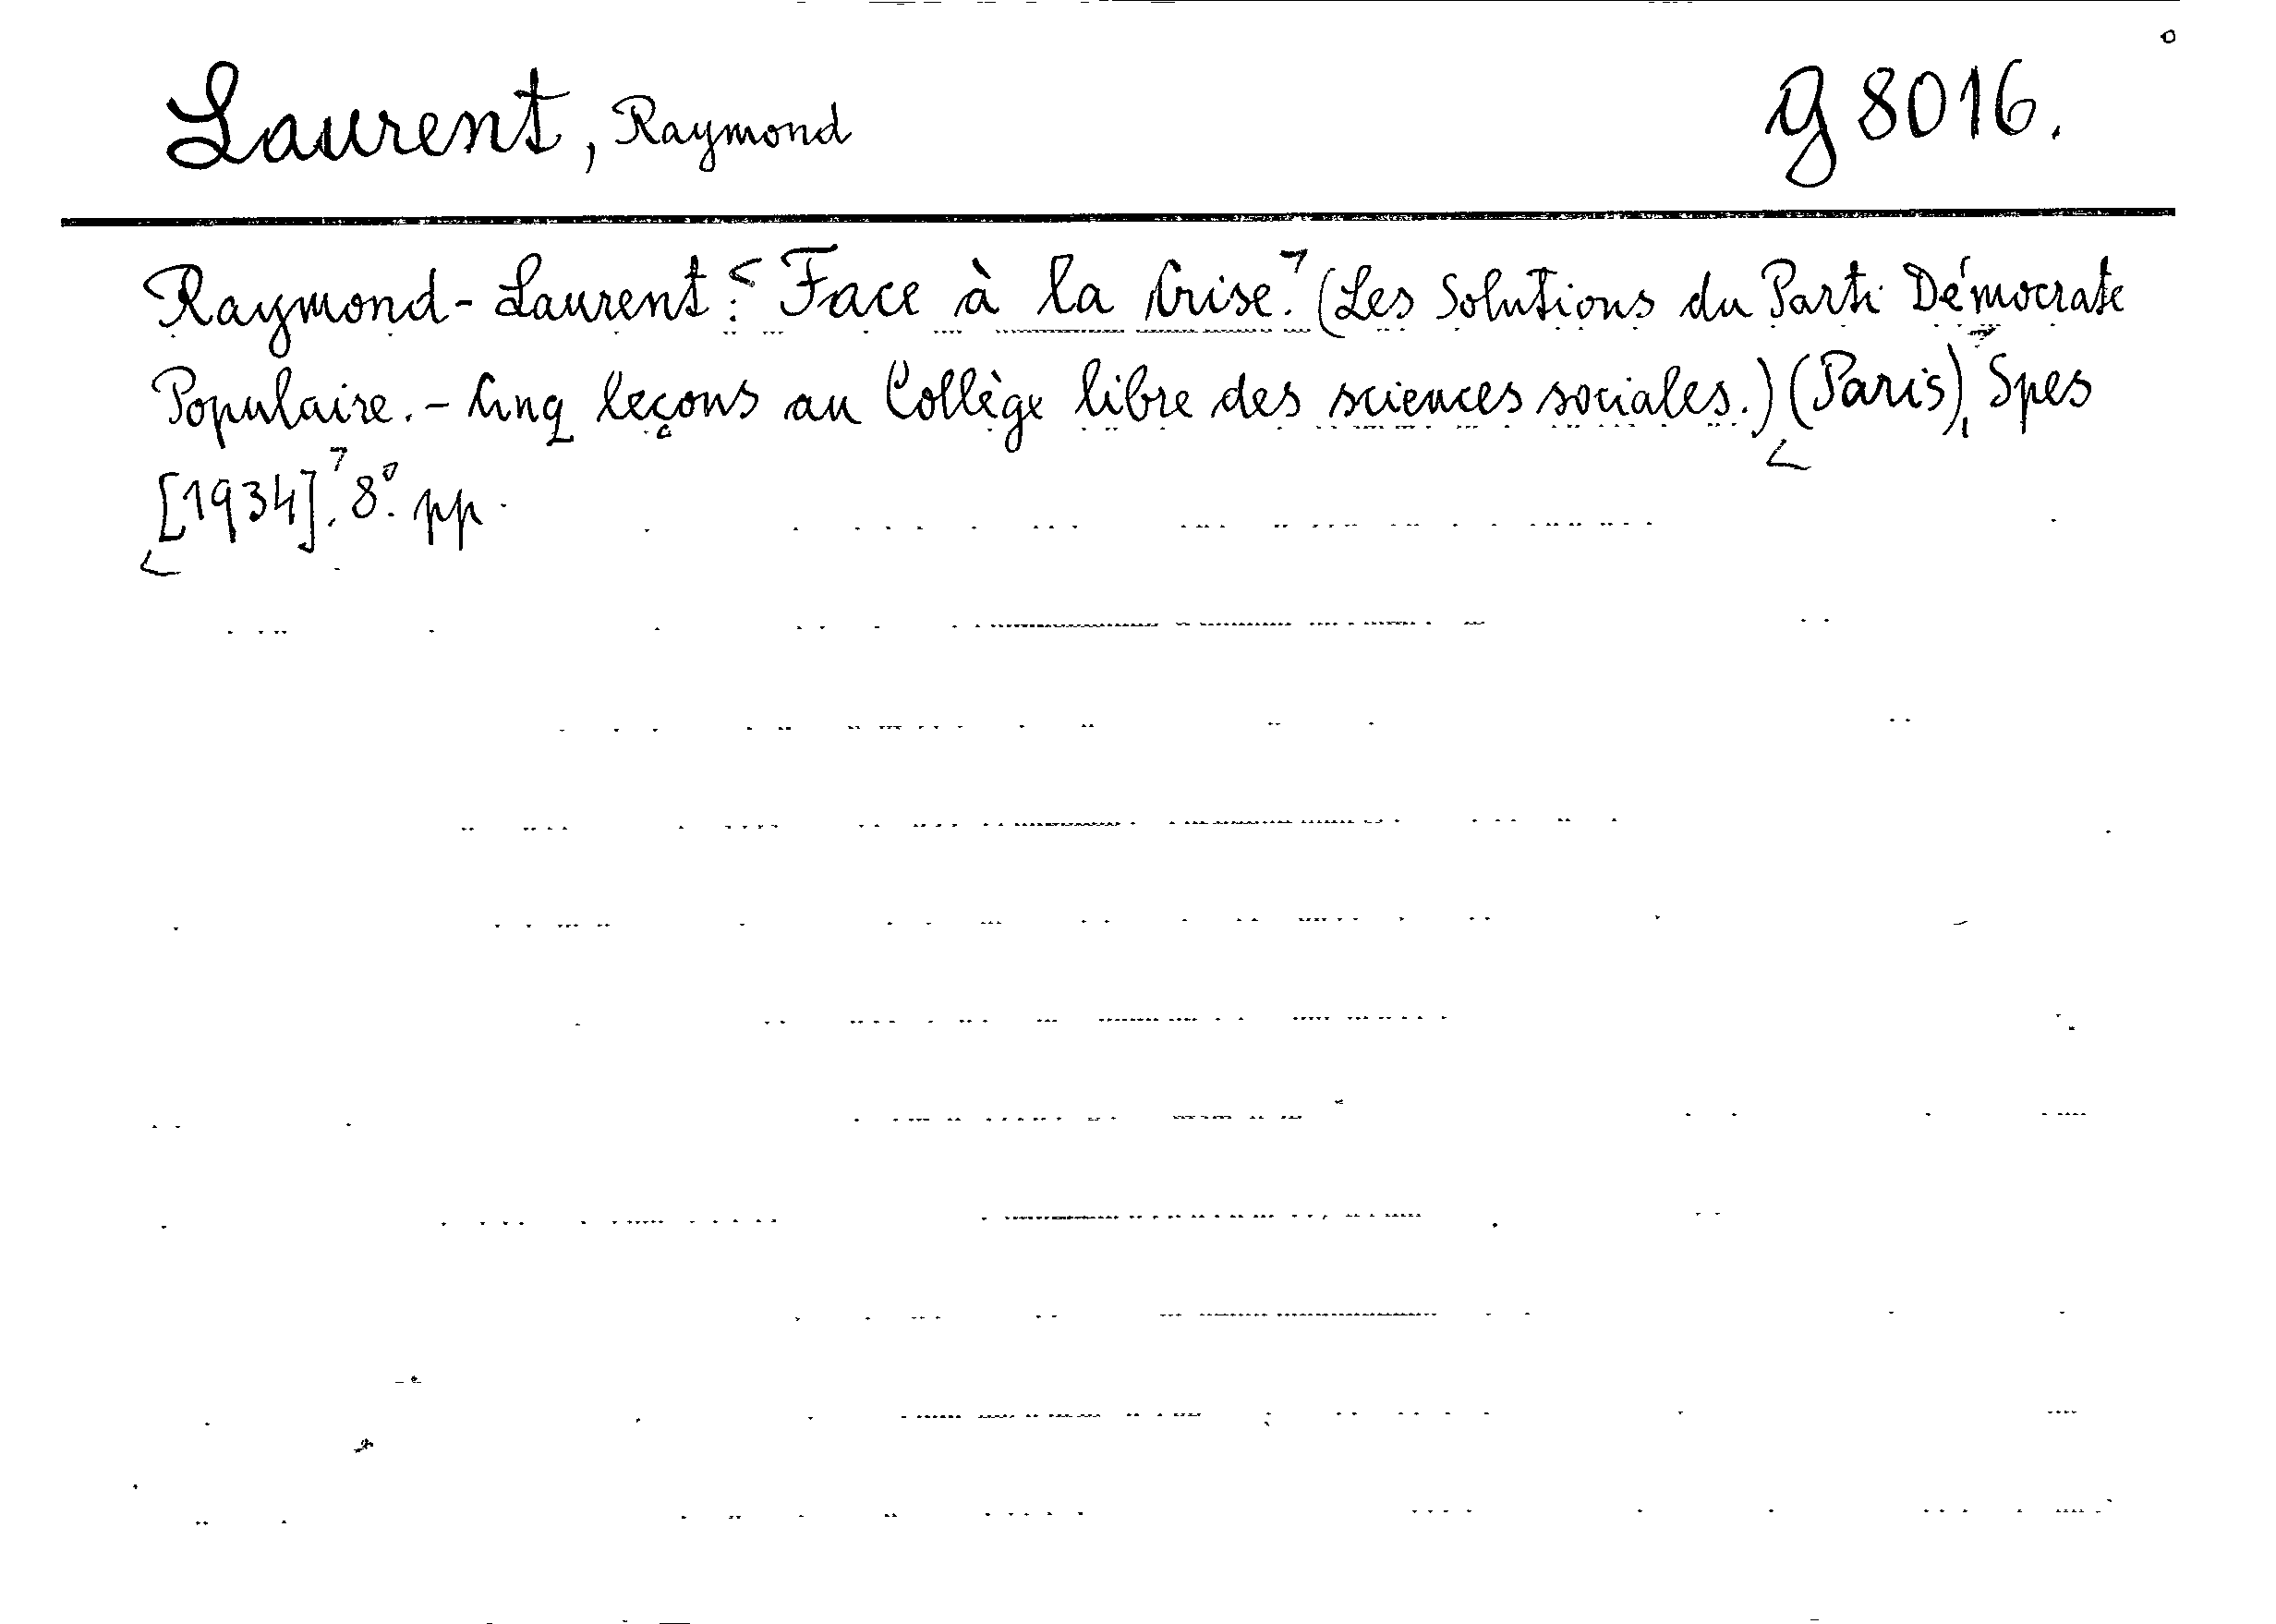 Laurent, Raymond g 8016.
Raymond-Laurent: Face à la Crise. (Les Solutions du Parti Démocrate
Populaire. - Cinq leçons au Collège libre des sciences sociales.) (Paris), Spes
[1934]. 8º. pp.